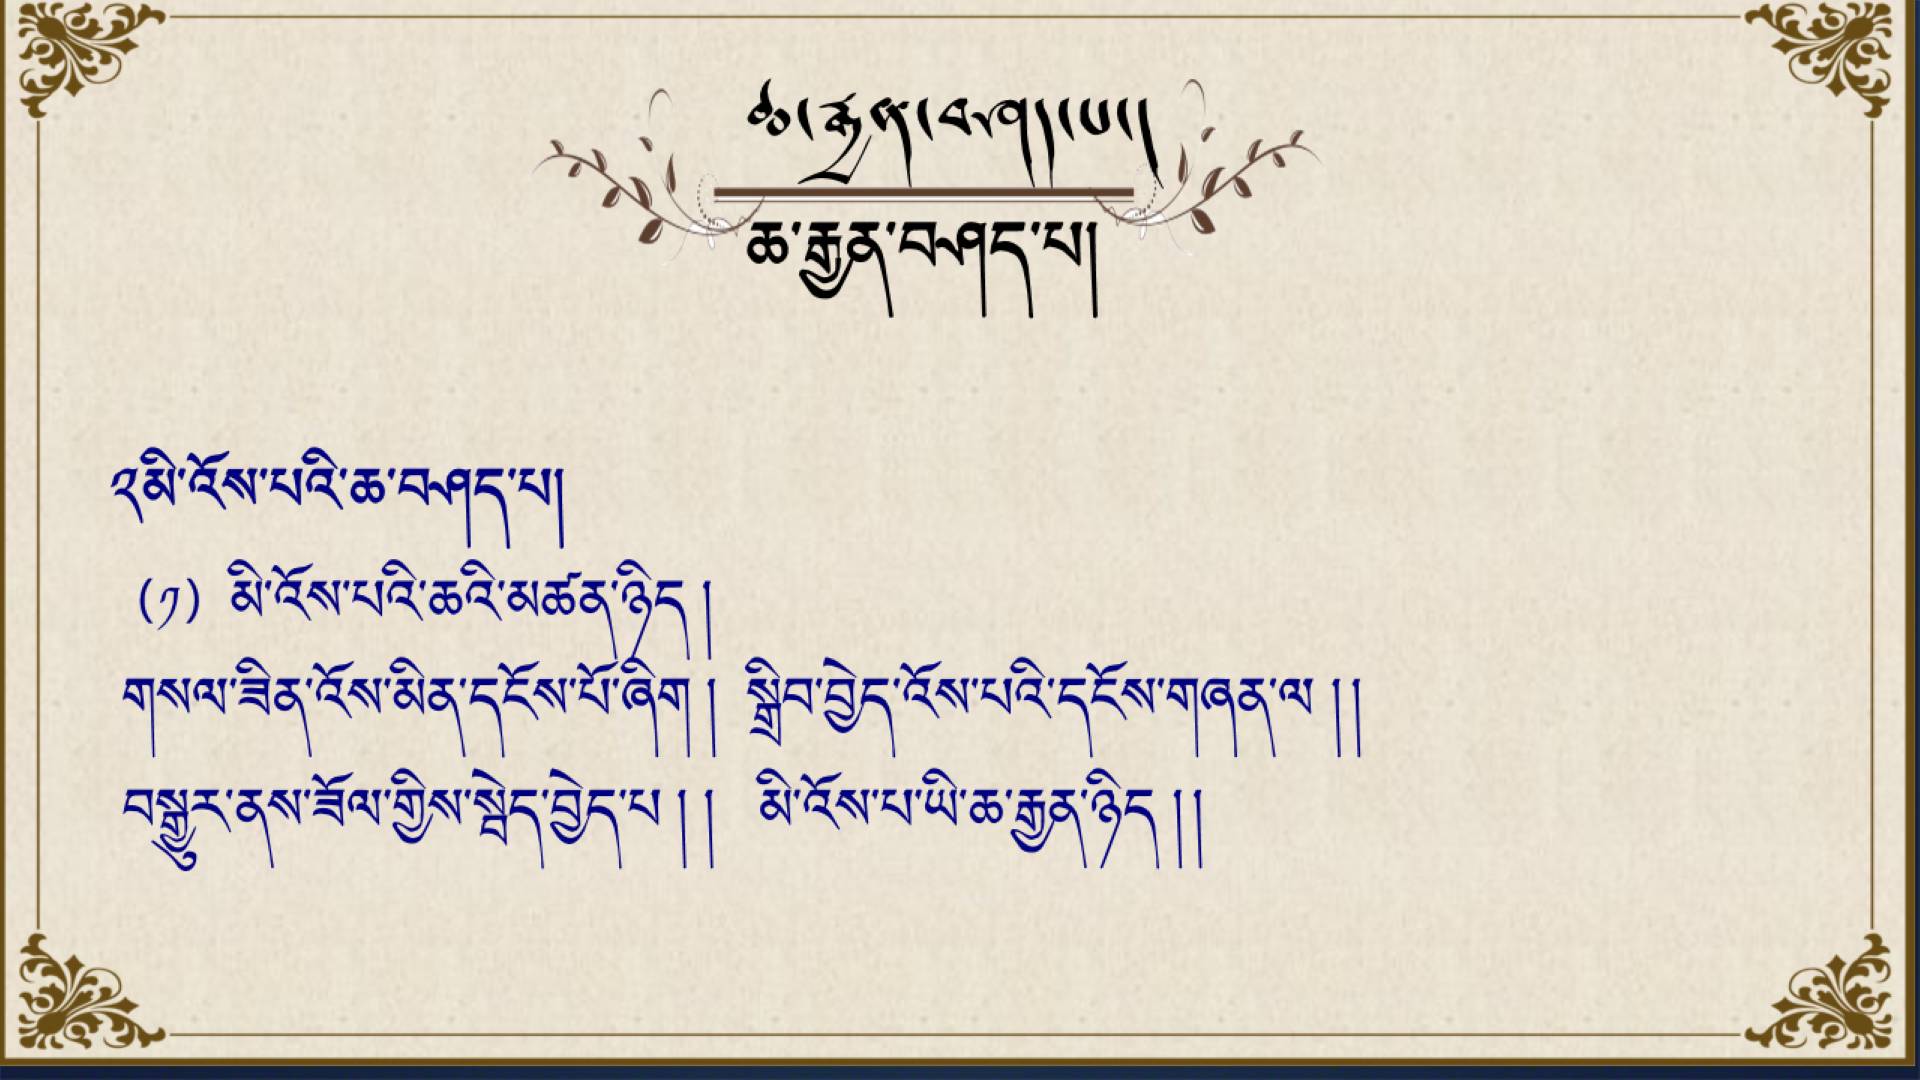 ཆ་རྒྱན་བཤད་པ།
ཆ་རྒྱན་བཤད་པ།
༢མི་འོས་པའི་ཆ་བཤད་པ།
(༡) མི་འོས་པའི་ཆའི་མཚན་ཉིད །
གསལ་ཟིན་འོས་མིན་དངོས་པོ་ཞིག ། སྒྲིབ་བྱེད་འོས་པའི་དངོས་གཞན་ལ །།
བསྒྱུར་ནས་ཟོལ་གྱིས་སྦེད་བྱེད་པ །། མི་འོས་པ་ཡི་ཆ་རྒྱན་ཉིད །།